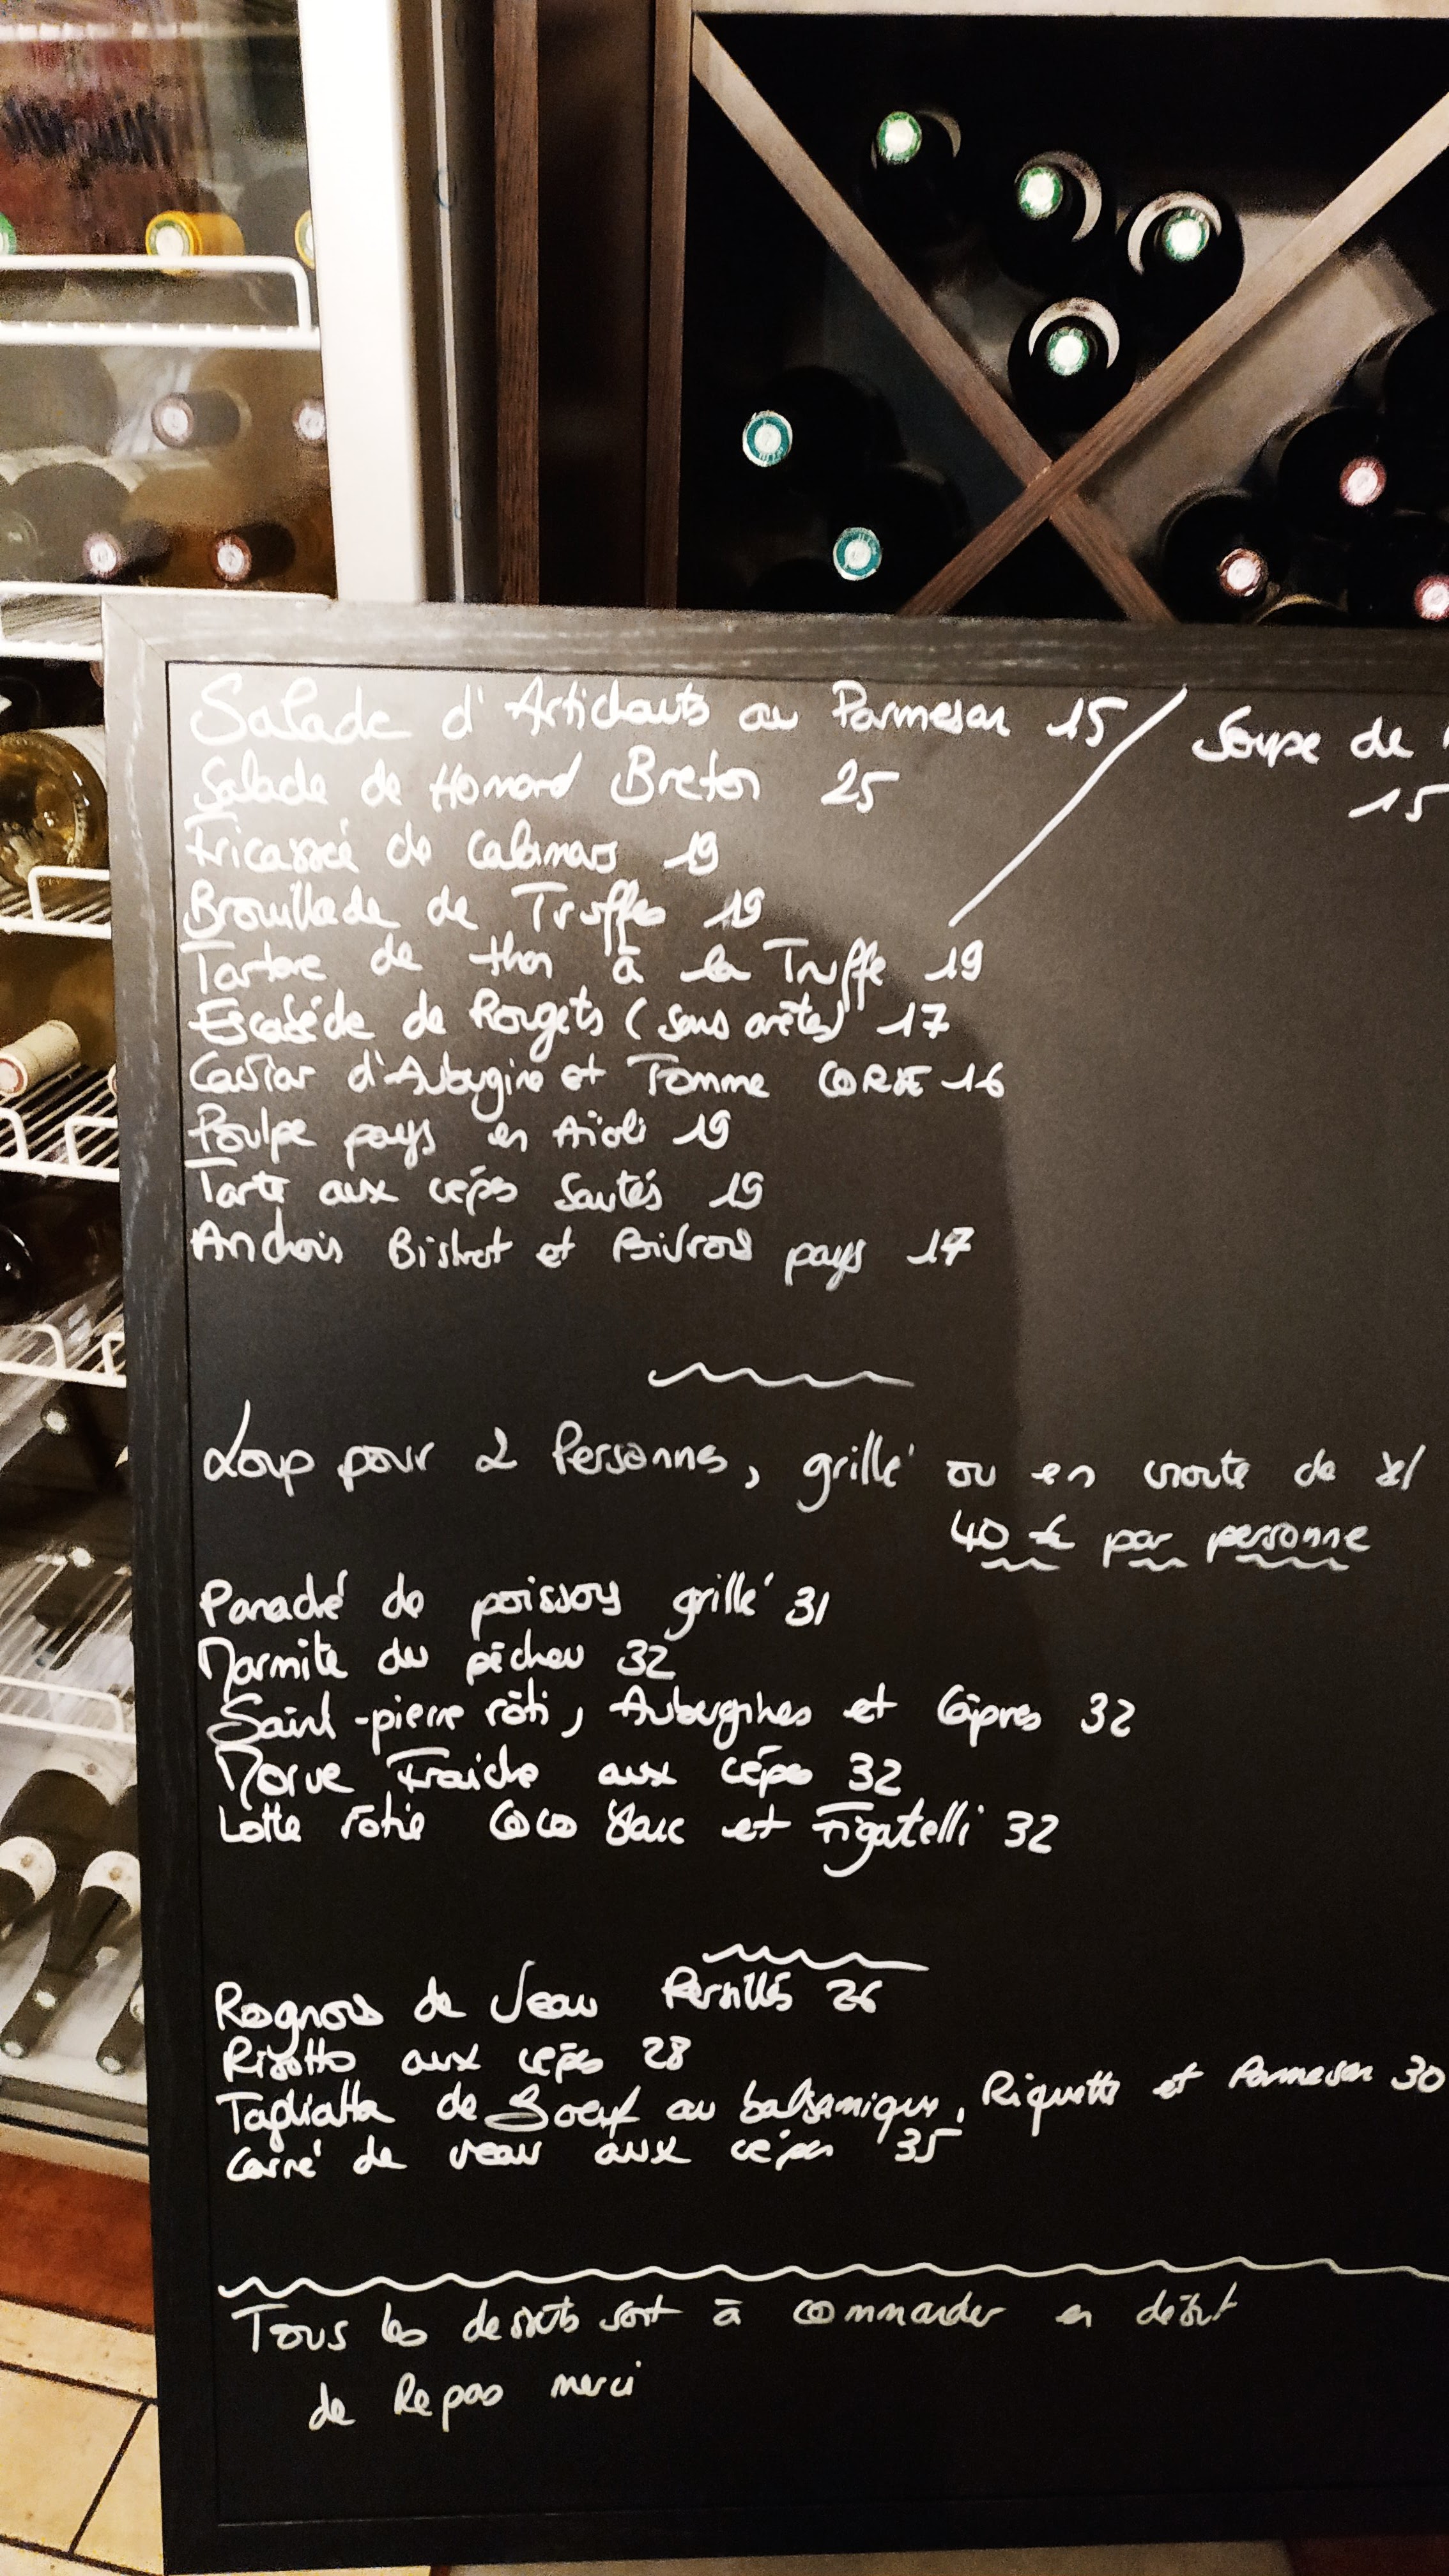 Salade d'Artichauts au Parmesan 15 / Soupe de
15
Salade de Homard Breton 25
Fricassée de calamars 19
Brouillade de Truffes 19
Tartare de thon à la Truffe 19
Escabèche de Rougets (sans arêtes) 17
Caviar d'Aubergine et Tomme CORSE 16
Poulpe pays en Aïoli 19
Tarte aux cèpes Sautés 19
Anchois Bistrot et Poivrons pays 17
Loup pour 2 Personnes, grillé ou en croute de sel
40 € par personne
Panaché de poissons grillé 31
Marmite du pêcheur 32
Saint-pierre rôti, Aubergines et Câpres 32
Morue Fraiche aux cèpes 32
Lotte rotie Coco et Figatelli 32
Rognons de Veau Persillés 26
Risotto aux cèpes 28
Tagliatta de Boeuf au balsamique, Riquette et Parmesan 30
Carré de veau aux cèpes 35
Tous les desserts sont à commander en début
de Repas merci